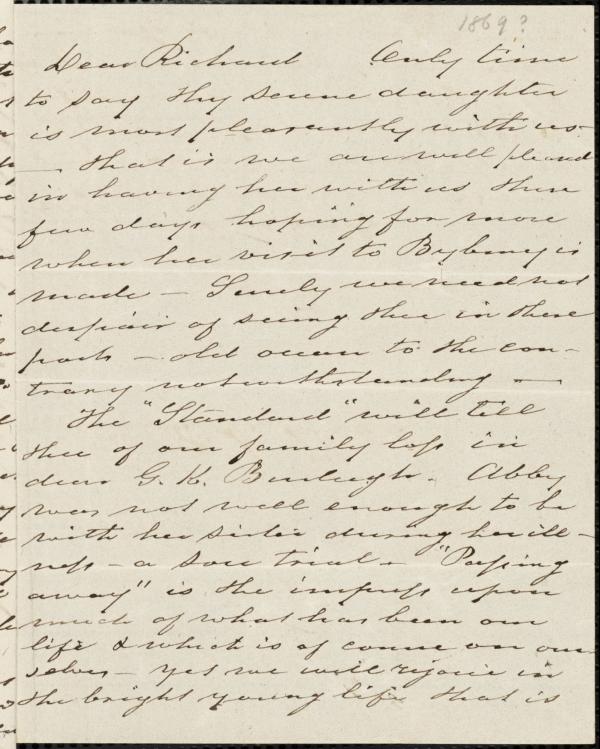 1869?
Dear Richard Only time
to say thy serene daughter
is most pleasantly with us
— that is we are well pleased
in having her with us these
few days hoping for more
when her visit to Byberry is
made — Surely we need not
despair of seeing thee in these
parts — old ocean to the con-
trary notwithstanding —
The "Standard" will tell
thee of our family loss in
dear G. K. Burleigh. Abby
was not well enough to be
with her sister during her ill-
ness — a sore trial — "Passing
away" is the impress upon
much of what has been our
life & which is of course on our-
selves — yet we will rejoice in
the bright young life that is